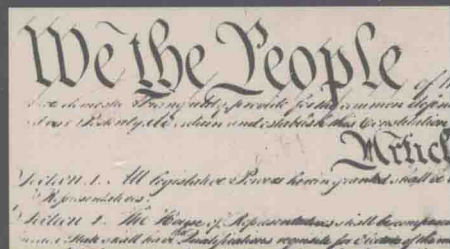 We the People of the
domestic Tranquility, provide for the common defence
and our Posterity, do ordain and establish this Constitution
Article
Section 1. All legislative Powers herein granted shall be
Representatives.
Section 2. The House of Representatives shall be composed
State shall have Qualifications requisite for Electors of the